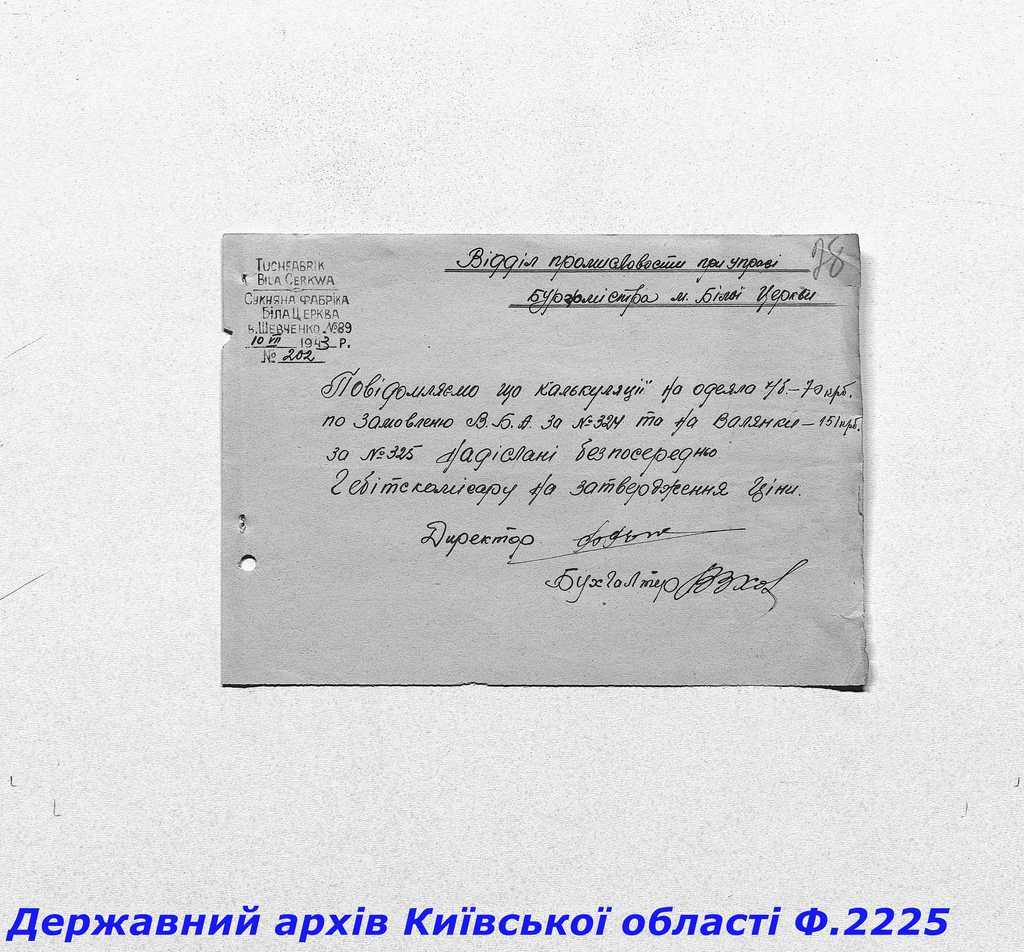 28
TUCHFABRIK
BILA CERKWA
СУКНЯНА ФАБРІКА
БІЛА ЦЕРКВА
в. ШЕВЧЕНКО №89
10 VII 1943 Р.
№ 202
Відділ промисловости при управі
Бургомістра м. Білої Церкви
Повідомляємо що калькуляції на одеяла ч/б. – 70 крб.
по замовленю В.Б.А. за № 324 та на Валянки – 151 крб.
за № 325 надіслані безпосередньо
Гебітскомісару на затвердження Ціни.
Директор
Бухгалтер
Державний архів Київської області Ф.2225